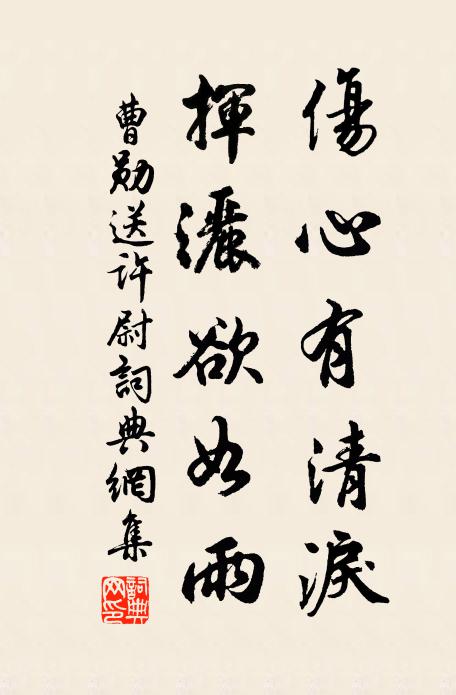 傷心有清淚
揮灑欲如雨
曹勛送許尉詞典網集
詞典网印